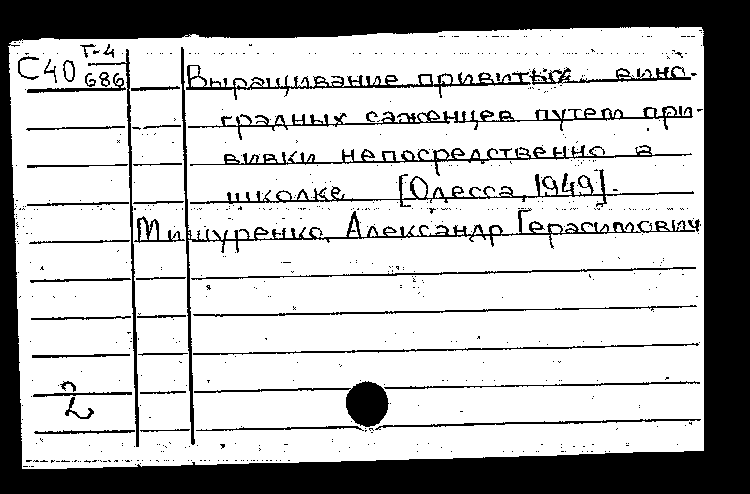 С40 Т-4/686
Выращивание привитых вино-
градных саженцев путем при-
вивки непосредственно в
школке [Одесса, 1949].
Мишуренко, Александр Герасимович
2